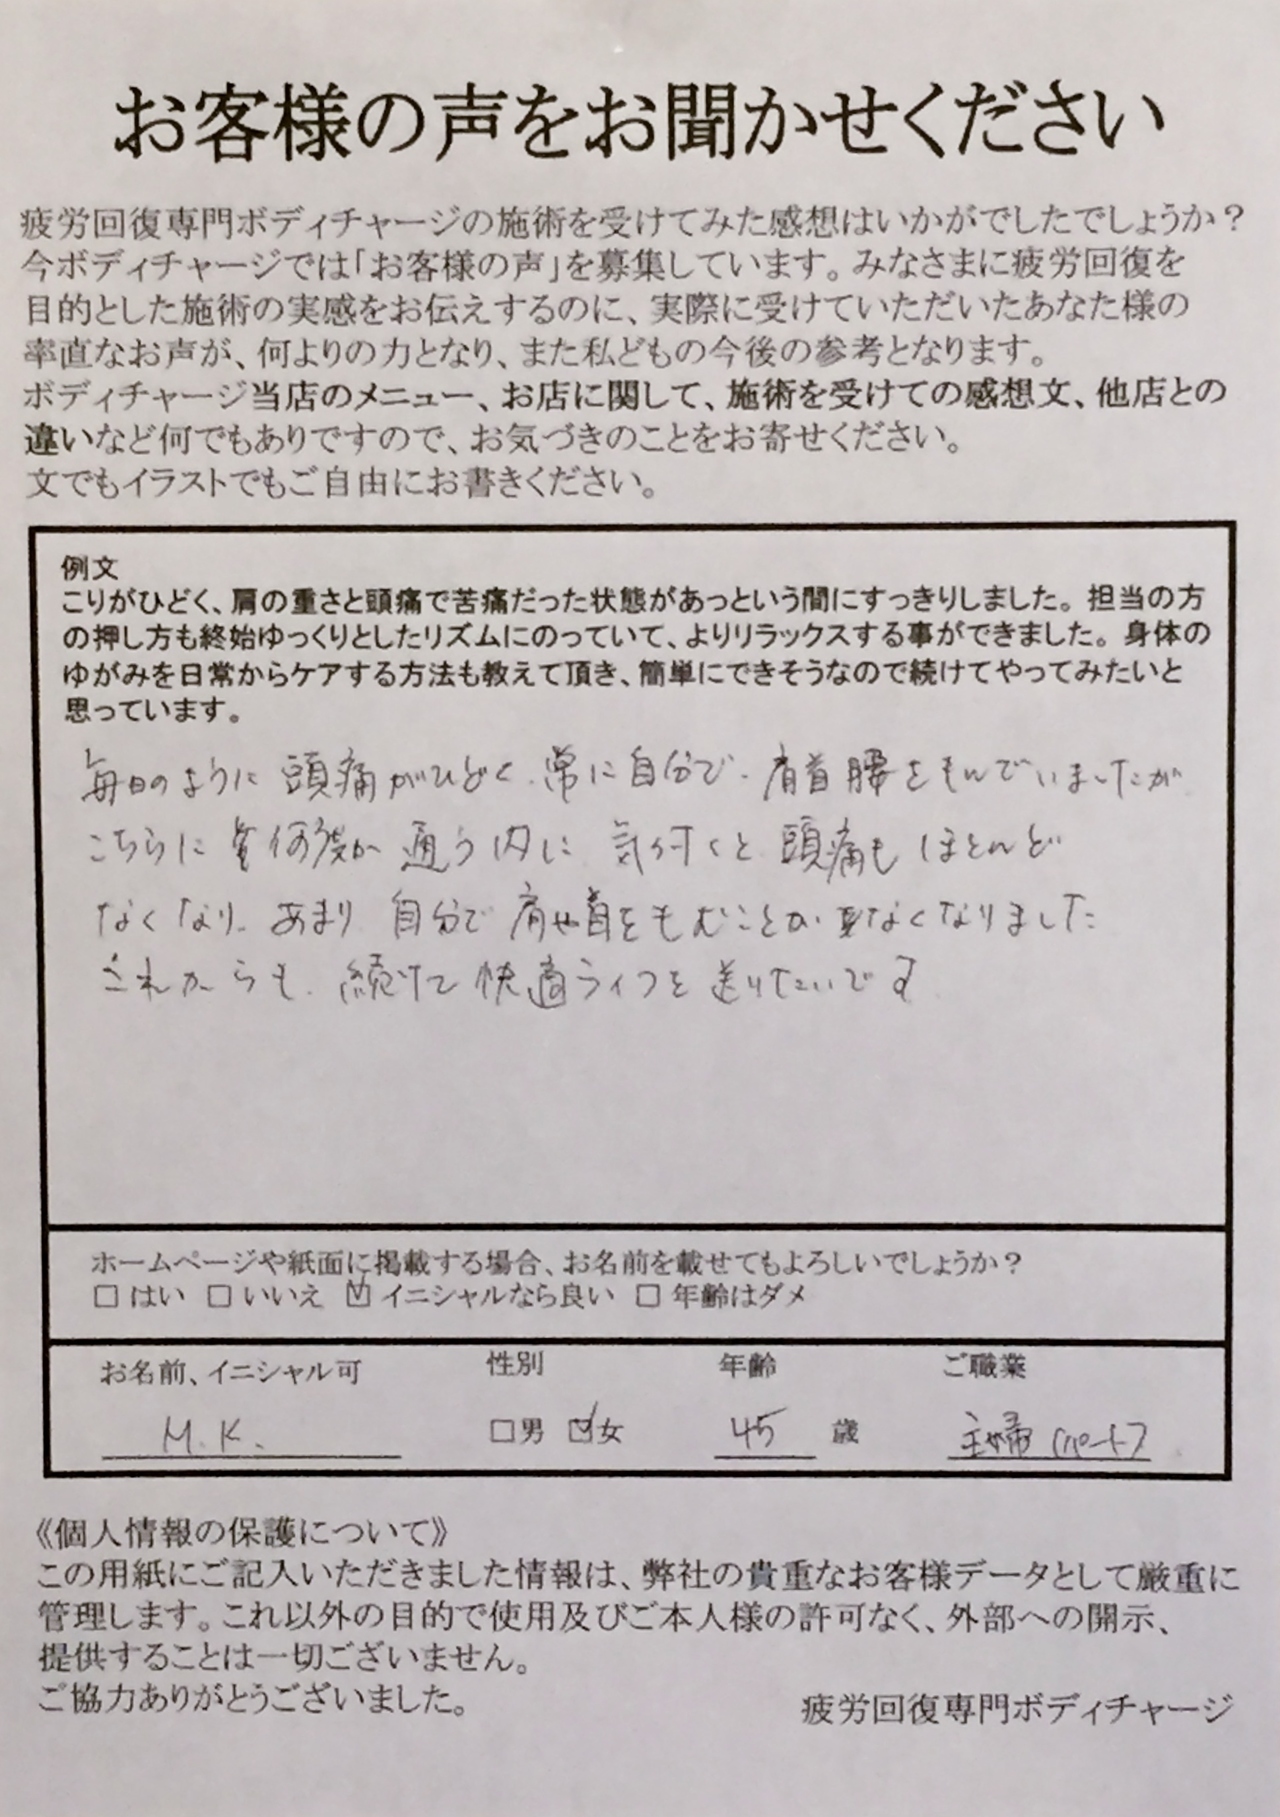 お客様の声をお聞かせください
疲労回復専門ボディチャージの施術を受けてみた感想はいかがでしたでしょうか？
今ボディチャージでは「お客様の声」を募集しています。みなさまに疲労回復を
目的とした施術の実感をお伝えするのに、実際に受けていただいたあなた様の
率直なお声が、何よりの力となり、また私どもの今後の参考となります。
ボディチャージ当店のメニュー、お店に関して、施術を受けての感想文、他店との
違いなど何でもありですので、お気づきのことをお寄せください。
文でもイラストでもご自由にお書きください。
例文
こりがひどく、肩の重さと頭痛で苦痛だった状態があっという間にすっきりしました。担当の方
の押し方も終始ゆっくりとしたリズムにのっていて、よりリラックスする事ができました。身体の
ゆがみを日常からケアする方法も教えて頂き、簡単にできそうなので続けてやってみたいと
思っています。
毎日のように頭痛がひどく、常に自分で、肩首腰をもんでいましたが
こちらに何度か通う内に気付くと頭痛もほとんど
なくなり、あまり自分で肩や首をもむことがなくなりました
これからも、続けて快適ライフを送りたいです
ホームページや紙面に掲載する場合、お名前を載せてもよろしいでしょうか？
□ はい □ いいえ ☑ イニシャルなら良い □ 年齢はダメ
お名前、イニシャル可 性別 年齢 ご職業
M.K. □男 ☑女 45 歳 主婦（パート）
《個人情報の保護について》
この用紙にご記入いただきました情報は、弊社の貴重なお客様データとして厳重に
管理します。これ以外の目的で使用及びご本人様の許可なく、外部への開示、
提供することは一切ございません。
ご協力ありがとうございました。
疲労回復専門ボディチャージ